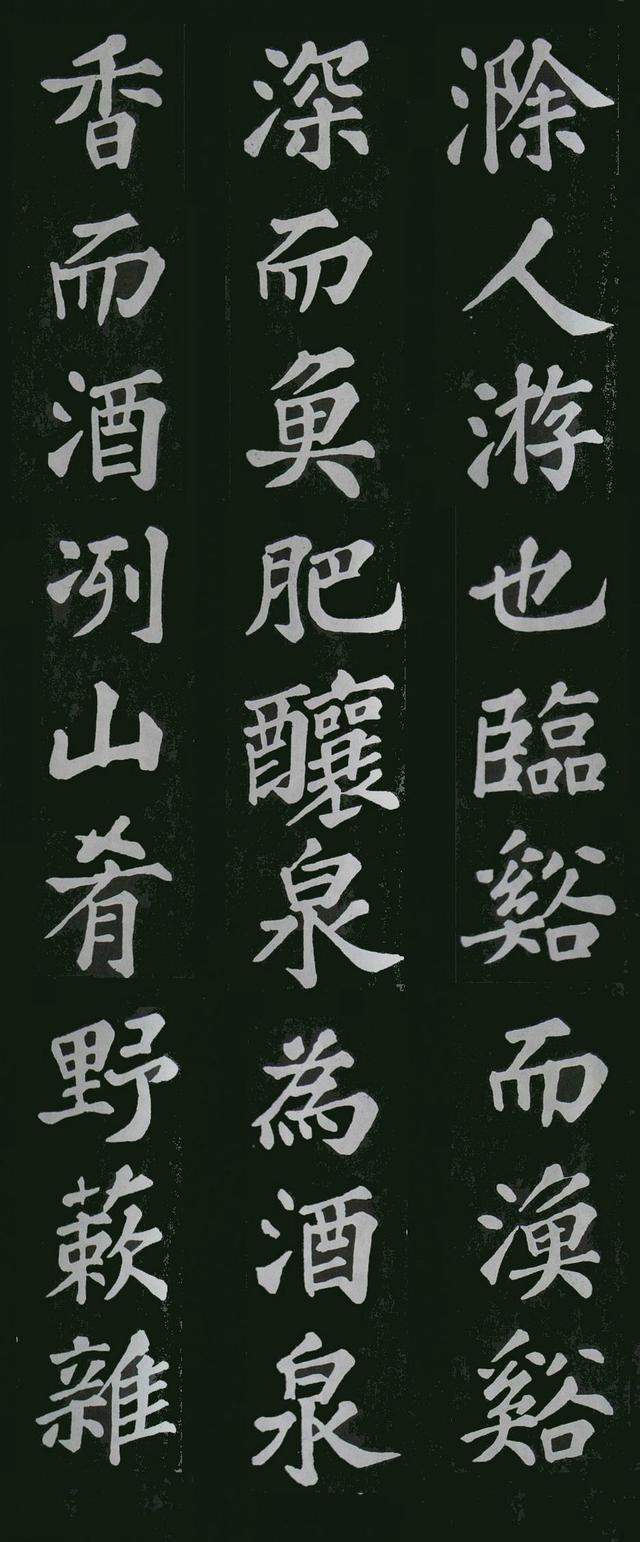 滁人游也臨谿而漁谿
深而魚肥釀泉為酒泉
香而酒冽山肴野蔌雜